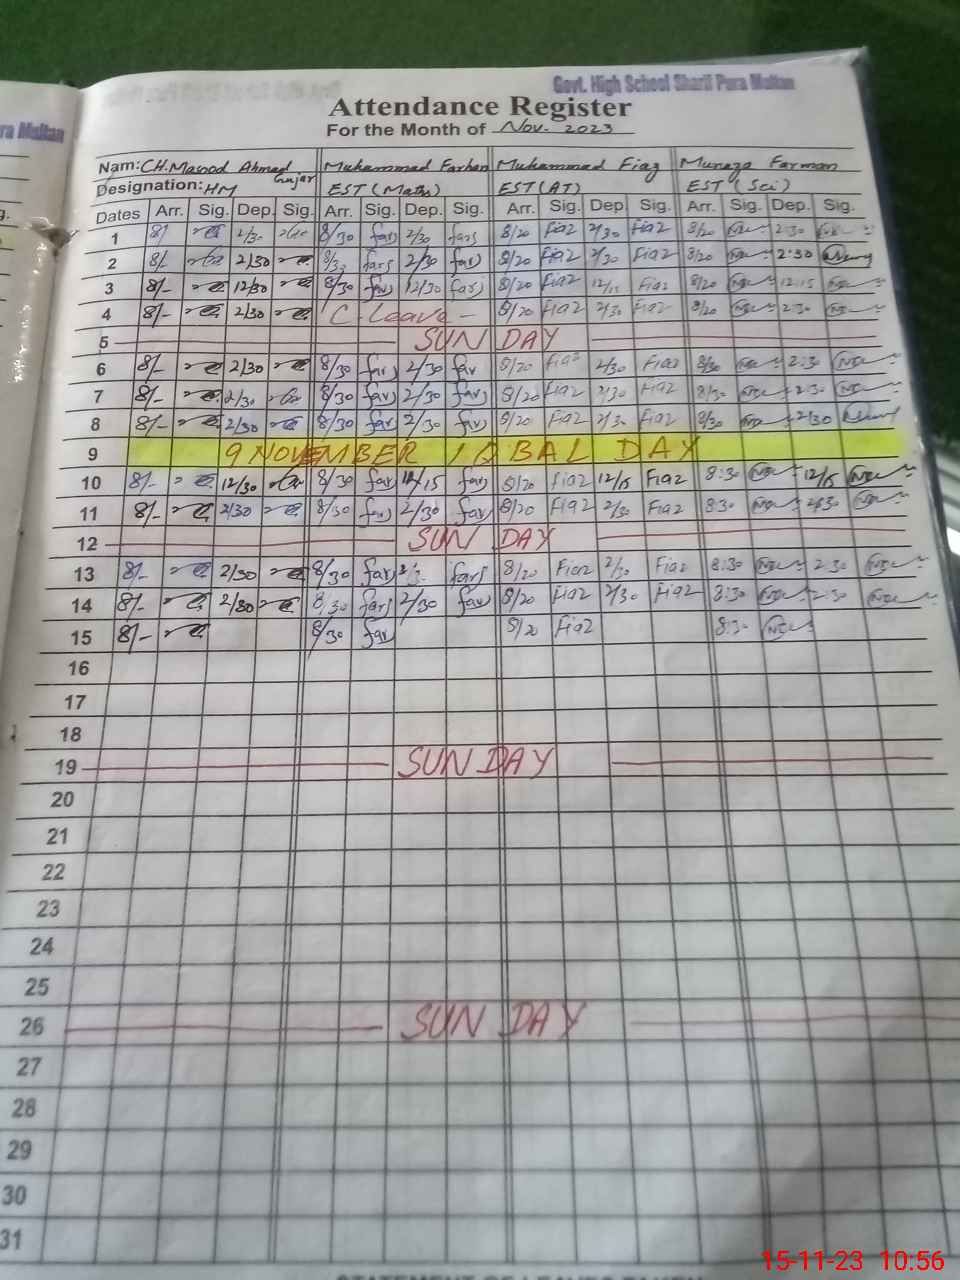 Govt. High School Sharif Pura Multan
ra Multan
Attendance Register
For the Month of Nov. 2023
Nam: CH. Masood Ahmad Gujar Muhammad Farhan Muhammad Fiaz Munaza Farman
Designation: HM EST (Maths) EST (AT) EST (Sci)
Dates Arr. Sig. Dep. Sig. Arr. Sig. Dep. Sig. Arr. Sig. Dep. Sig. Arr. Sig. Dep. Sig.
1 8/ 2/30 8/30 fars 2/30 fars 8/20 Fiaz 2/30 Fiaz 8/20 2:30
2 8/- 2/30 fars 2/30 far) 8/20 Fiaz 2/30 Fiaz 8/20 2:30
3 8/- 12/30 8/30 far) 12/30 far) 8/20 Fiaz 12/15 Fiaz 8/20 12:15
4 8/- 2/30 C. Leave - 8/20 Fiaz 2/30 Fiaz 8/20 2:30
5 SUN DAY
6 8/- 2/30 8/30 far) 2/30 far 8/20 Fiaz 2/30 Fiaz 8/30 2:30
7 8/- 2/30 8/30 far) 2/30 far) 8/20 Fiaz 2/30 Fiaz 8/30 2:30
8 8/- 2/30 8/30 far) 2/30 far) 8/20 Fiaz 2/30 Fiaz 8/30 2/30
9 9 NOVEMBER IQBAL DAY
10 8/- 12/30 8/30 far) 15 far) 8/20 Fiaz 12/15 Fiaz 8:30 12/15
11 8/- 2/30 8/30 far) 2/30 far) 8/20 Fiaz 2/30 Fiaz 8:30 2:30
12 SUN DAY
13 8/- 2/30 8/30 far) fars 8/20 Fiaz 2/30 Fiaz 8:30 2:30
14 8/- 2/30 8/30 fars 2/30 far) 8/20 Fiaz 2/30 Fiaz 8:30 2:30
15 8/- 8/30 far 8/20 Fiaz 8:30
16
17
18
19 SUN DAY
20
21
22
23
24
25
26 SUN DAY
27
28
29
30
31
STATEMENT OF LEAVES TAKEN
15-11-23 10:56